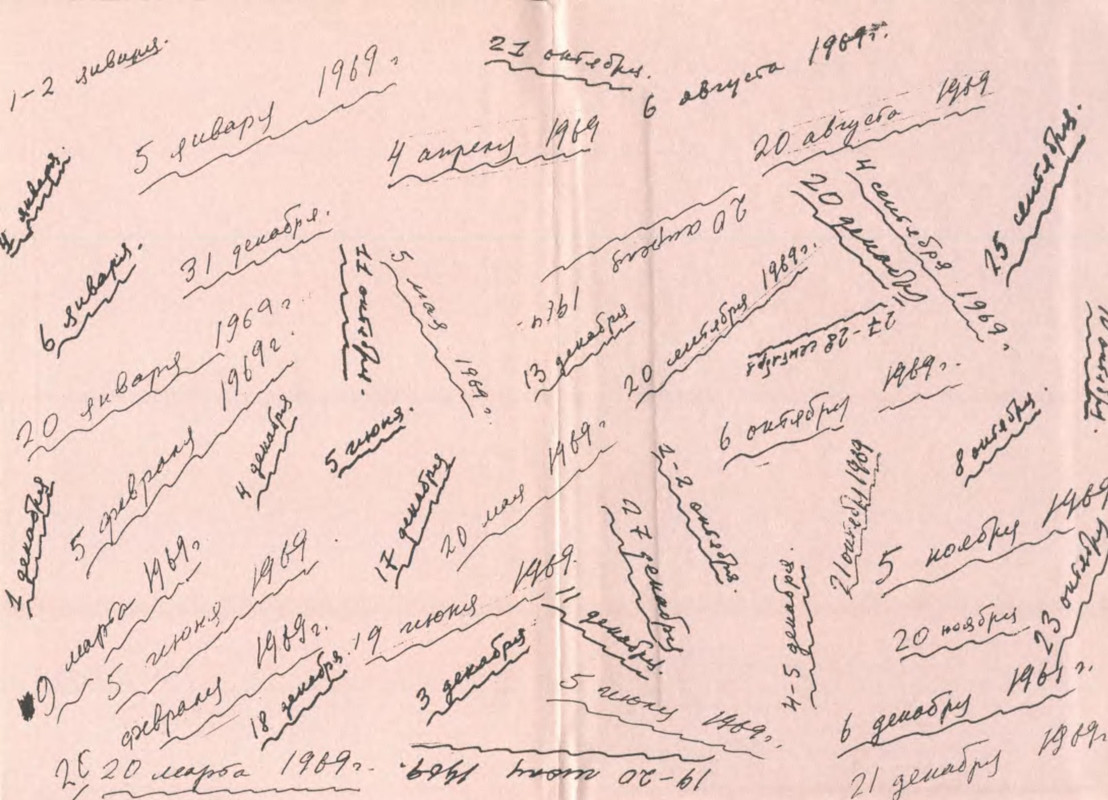 1-2 января.
5 января 1969 г
21 октября.
6 августа 1969г.
4 апреля 1969
20 августа 1969
4 января.
25 сентября.
31 декабря.
6 января.
11 октября.
5 мая 1969 г.
20 апреля
20 декабря
4 сентября 1969 г.
20 января 1969 г
13 декабря
20 сентября 1969г.
27-28 сентября
5 февраля 1969г
4 декабря
5 июня.
6 октября 1969 г.
8 октября.
1 декабря
17 декабря
20 мая 1969г.
1-2 октября.
27 декабря
21 октября 1969
5 ноября 1969
9 марта 1969г
5 июня 1969
19 июня 1969.
11 декабря.
4-5 декабря.
20 ноября
23 октября
февраля 1969г.
18 декабря.
3 декабря
5 июля 1969г.
6 декабря 1969 г.
20 марта 1969г.
19-20 июля 1969.
21 декабря 1969г.